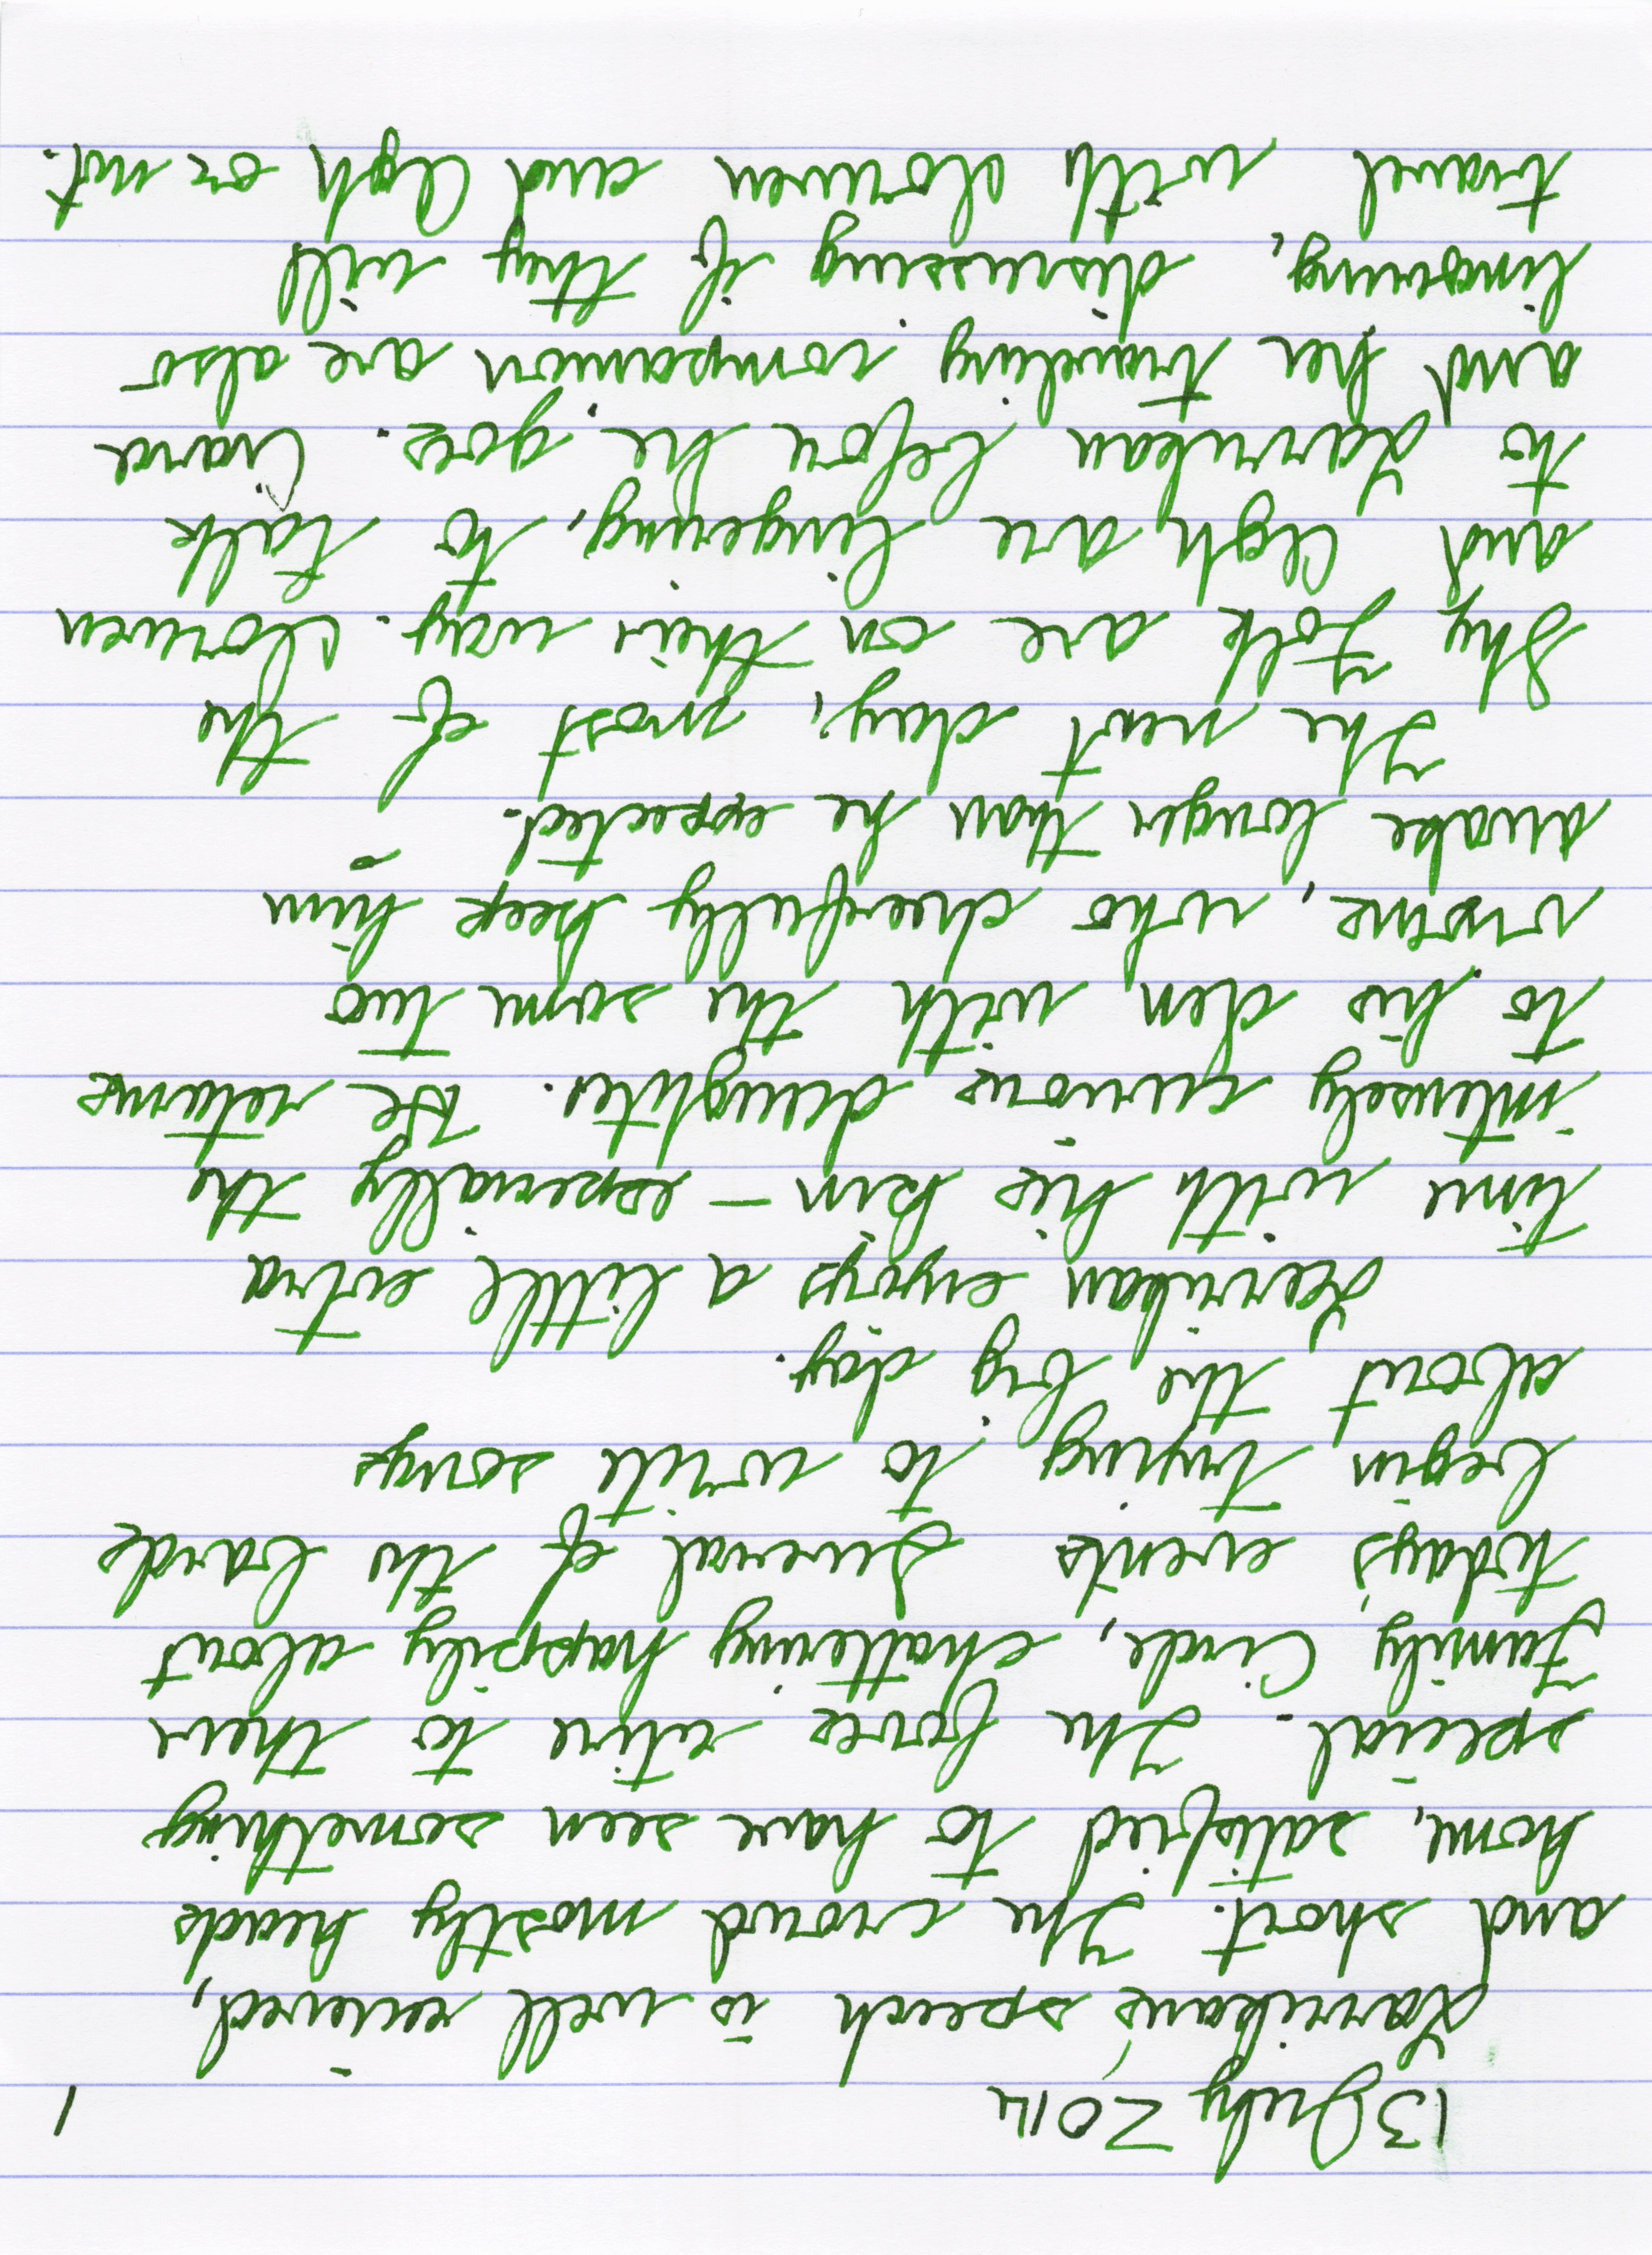 13 July 2014 1
Larrikan's speech is well recieved,
and short. The crowd mostly heads
home, satisfied to have seen something
special. The foxes retire to their
Family Circle, chattering happily about
today's events. Several of the bards
begin trying to write songs
about the big day.
Larrikan enjoys a little extra
time with his kin – especially the
intensely curious daughter. He returns
to his den with the same two
moms, who cheerfully keep him
awake longer than he expected.
The next day, most of the
Shy Folk are on their way.
and are lingering, to talk
to Larrikan before he goes. Ciara
and her traveling companion are also
lingering, discussing if they will
travel with and or not.